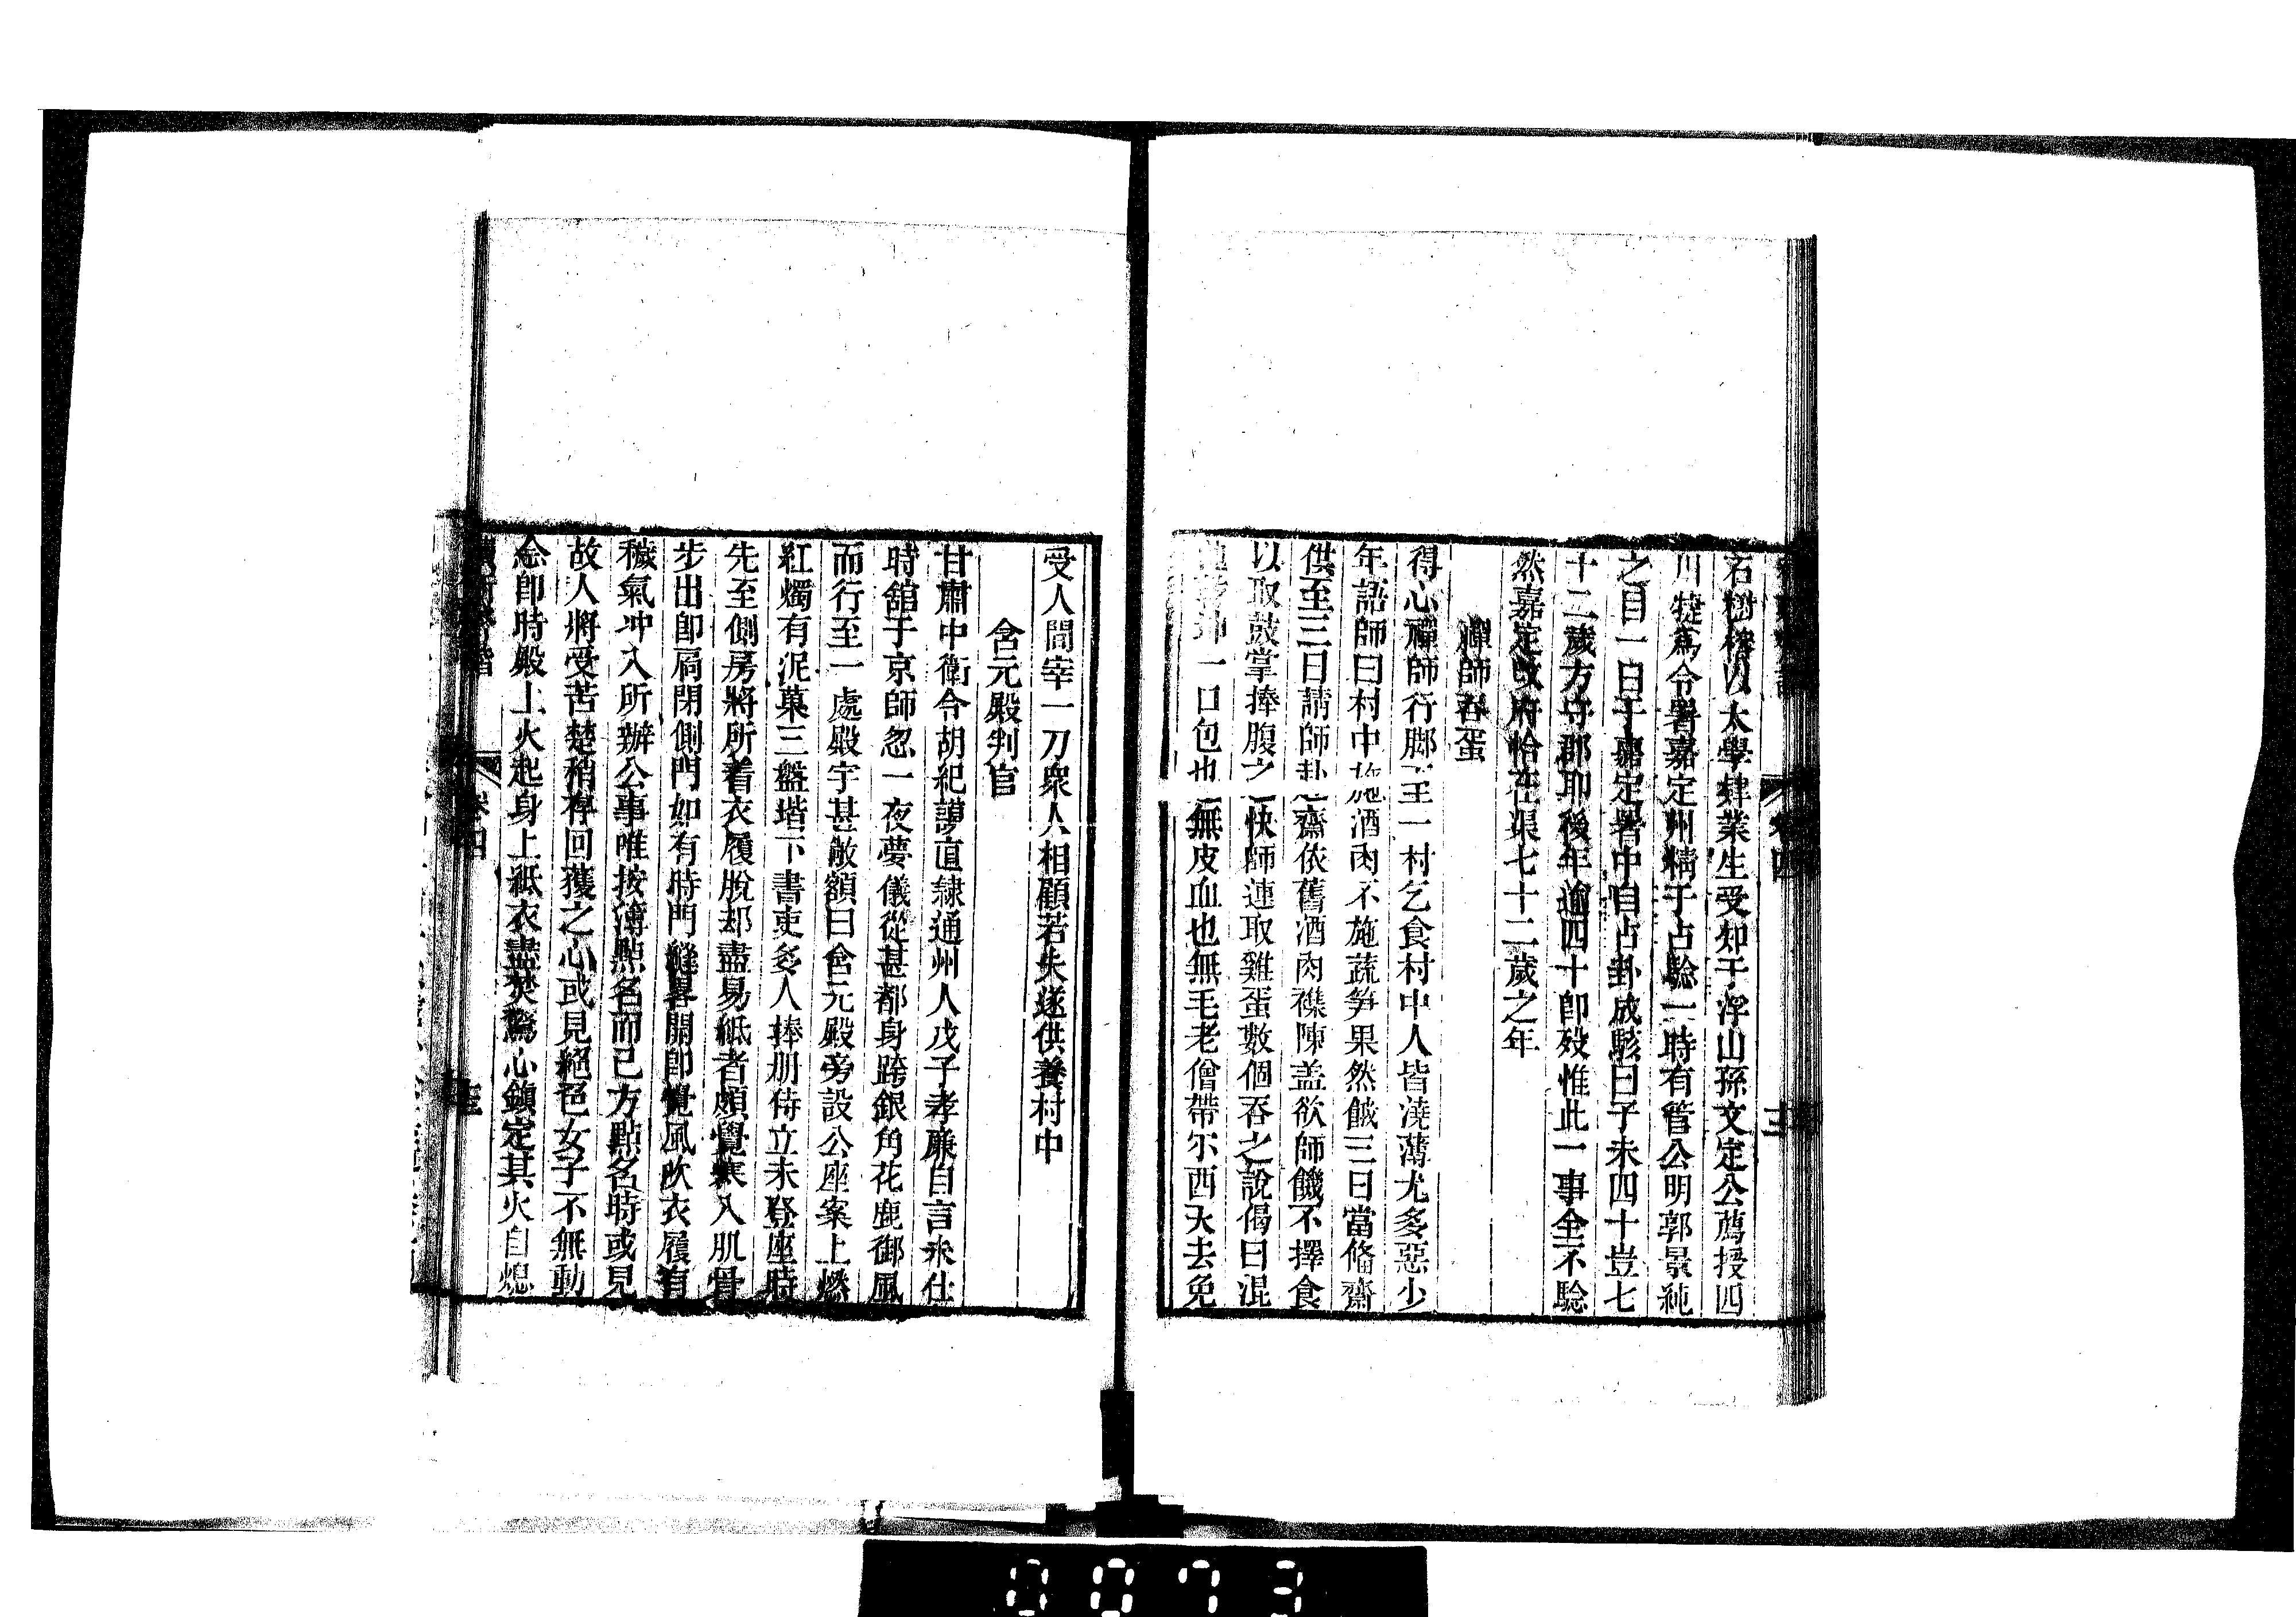 石樹椿以太學肄業生受知于浮山孫文定公薦授四
川犍為令署嘉定州精于占驗一時有管公明郭景純
之目一日于嘉定署中自占卦成駭曰予未四十豈七
十二歲方守郡耶後年逾四十卽歿惟此一事全不驗
然嘉定改府恰在渠七十二歲之年
禪師吞蛋
得心禪師行脚至一村乞食村中人皆澆薄尤多惡少
年語師曰村中施酒肉不施蔬笋果然餓三日當俻齋
供至三日請師赴齋依舊酒肉襍陳盖欲師饑不擇食
以取鼓掌捧腹之快師連取雞蛋數個吞之說偈曰混
沌乾坤一口包也無皮血也無毛老僧帶尓西天去免
受人間宰一刀衆人相顧若失遂供養村中
含元殿判官
甘肅中衛令胡紀謨直隷通州人戊子孝廉自言未仕
時舘于京師忽一夜夢儀從甚都身跨銀角花鹿御風
而行至一處殿宇甚敞額曰含元殿旁設公座案上燃
紅燭有泥菓三盤堦下書吏多人捧册侍立未登座時
先至側房將所着衣履脫却盡易紙者頗覺寒入肌骨
步出卽扃閉側門如有時門縫畧開卽覺風吹衣履有
穢氣冲入所辦公事唯按簿點名而已方點名時或見
故人將受苦楚稍存回護之心或見絕色女子不無動
念卽時殿上火起身上紙衣盡焚驚心鎮定其火自熄
卷四
0073